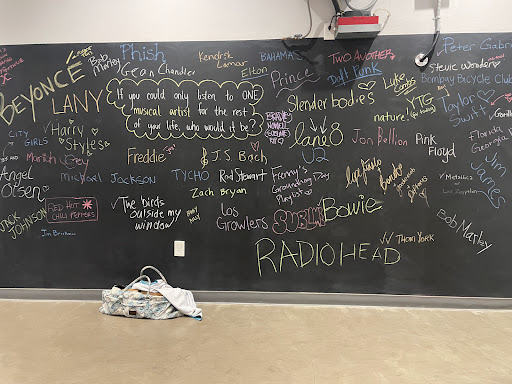 Phish
Kendrick
Lamar
BAHAMAS
TWO ANOTHER
Peter Gabri
Stevie Wonder
BEYONCÉ
Bob
Marley
Gean Chandler
Elton
Prince
Daft Punk
Luke
Combs
Bombay Bicycle Club
LANY
If you could only listen to ONE
musical artist for the rest
of your life, who would it be?
Slender bodies
nature!
YTG
Taylor
Swift
CITY
GIRLS
Harry
Styles
lane8
U2
Jon Bellion
Pink
Floyd
Florida
Georgia
Mariah Carey
Freddie
J.S. Bach
Angel
Olsen
Michael Jackson
TYCHO
Rod Stewart
Franny's
Groundhog Day
Playlist
Zach Bryan
Metallica
Led Zeppelin
JACK
JOHNSON
RED HOT
CHILI PEPPERS
The birds
outside my
window
Los
Growlers
SUBLIME
Bowie
Bob Marley
RADIOHEAD
Thom York